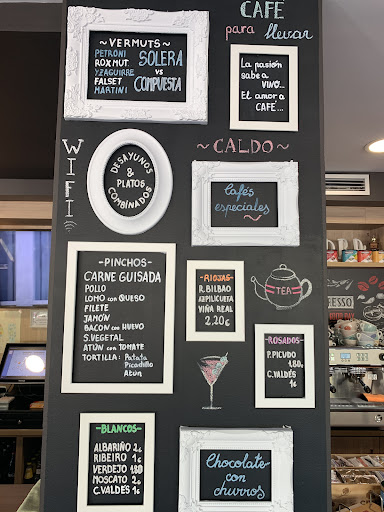 ~VERMUTS~
PETRONI
ROXMUT.
YZAGUIRRE
FALSET
MARTINI
SOLERA
vs
COMPUESTA
CAFE
para llevar
La pasión
sabe a
VINO...
El amor a
CAFÉ...
WIFI
DESAYUNOS
&
PLATOS
COMBINADOS
~CALDO~
Cafés
especiales
-PINCHOS-
CARNE GUISADA
POLLO
LOMO con QUESO
FILETE
JAMÓN
BACON con HUEVO
S.VEGETAL
ATÚN con TOMATE
TORTILLA: Patata
Picadillo
Atún
-RIOJAS-
R. BILBAO
AZPILICUETA
VIÑA REAL
2,20€
TEA
-ROSADOS-
P. PICUDO
1,80
C. VALDÉS
1€
-BLANCOS-
ALBARIÑO 2€
RIBEIRO 1€
VERDEJO 1,80
MOSCATO 2€
C. VALDÉS 1€
Chocolate
con
churros